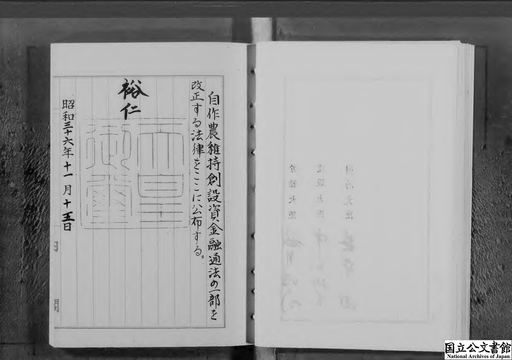 自作農維持創設資金融通法の一部を
改正する法律をここに公布する。
裕仁
天皇
御璽
昭和三十六年十一月十五日
国立公文書館
National Archives of Japan